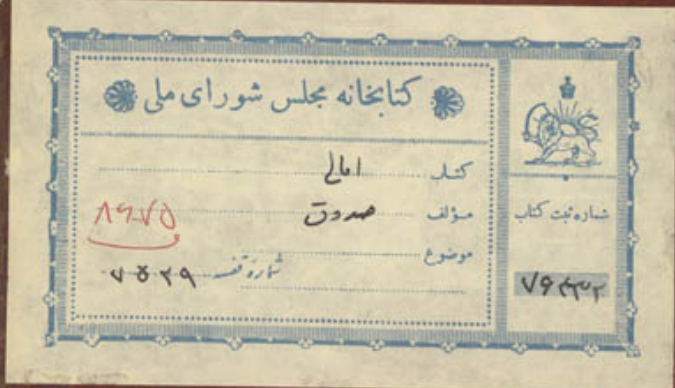 کتابخانه مجلس شورای ملی
کتاب امالی
مؤلف صدوق
۸۶۷۵
موضوع
شماره قفسه ۷۵۲۹
شماره ثبت کتاب
۷۶۴۳۲